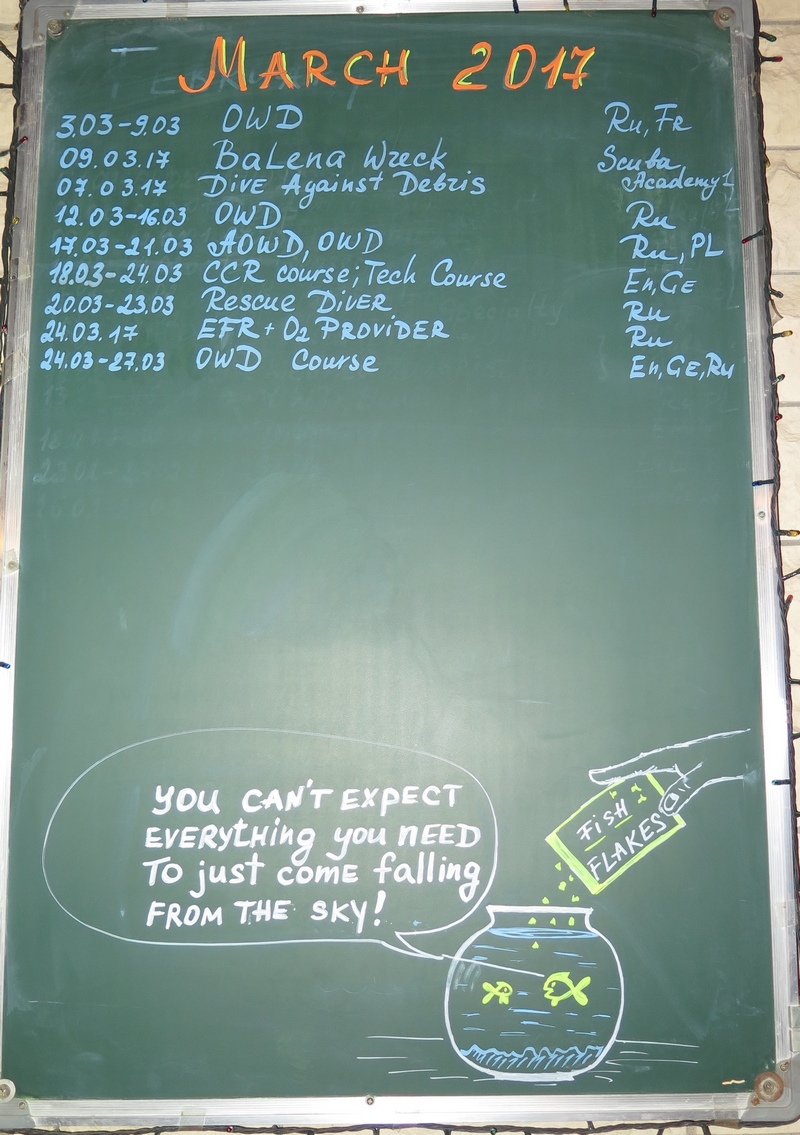 MARCH 2017
3.03-9.03 OWD Ru, Fr
09.03.17 BaLena Wreck Scuba
07.03.17 Dive Against Debris Academy
12.03-16.03 OWD Ru
17.03-21.03 AOWD, OWD Ru, PL
18.03-24.03 CCR course; Tech Course En, Ge
20.03-23.03 Rescue DivER Ru
24.03.17 EFR + O2 PROViDER Ru
24.03-27.03 OWD Course En, GE, Ru
FiSH
FLAKES
YOU CAN'T EXPECT
EVERYtHing you nEED
To just comE falling
FROM THE SKY!